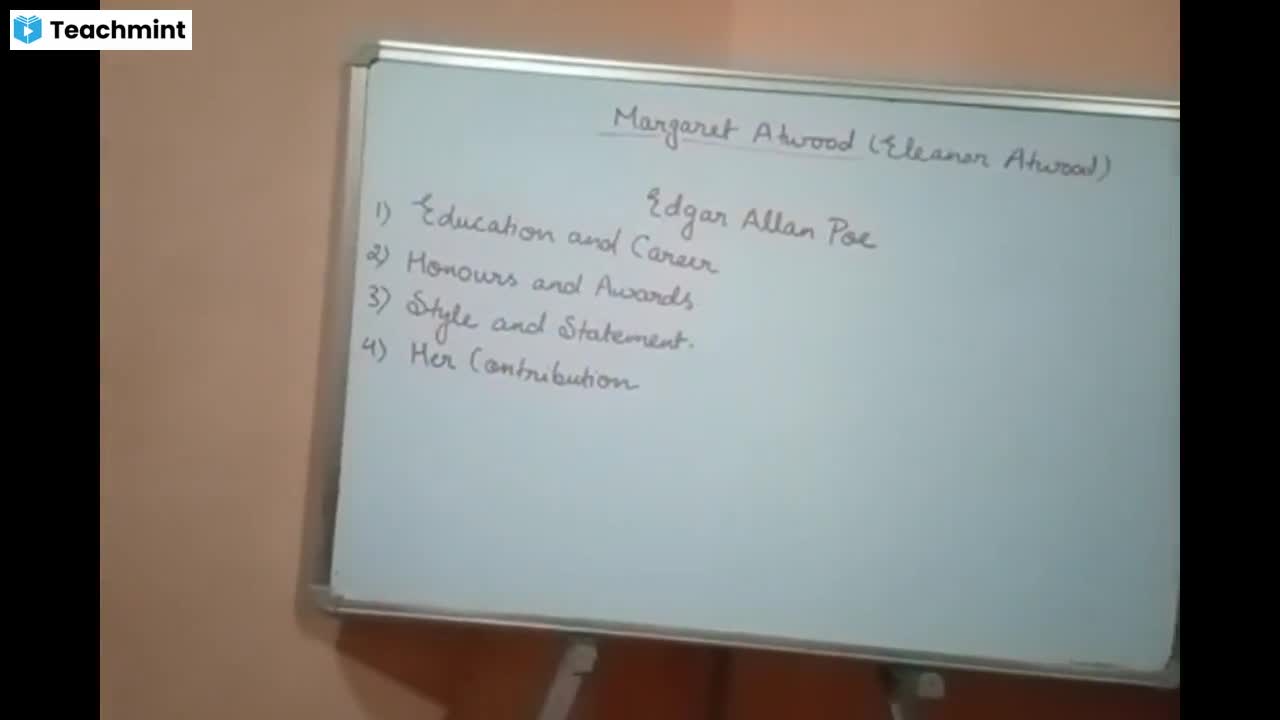 Teachmint
Margaret Atwood (Eleanor Atwood)
Edgar Allan Poe
1) Education and Career
2) Honours and Awards
3) Style and Statement.
4) Her Contribution